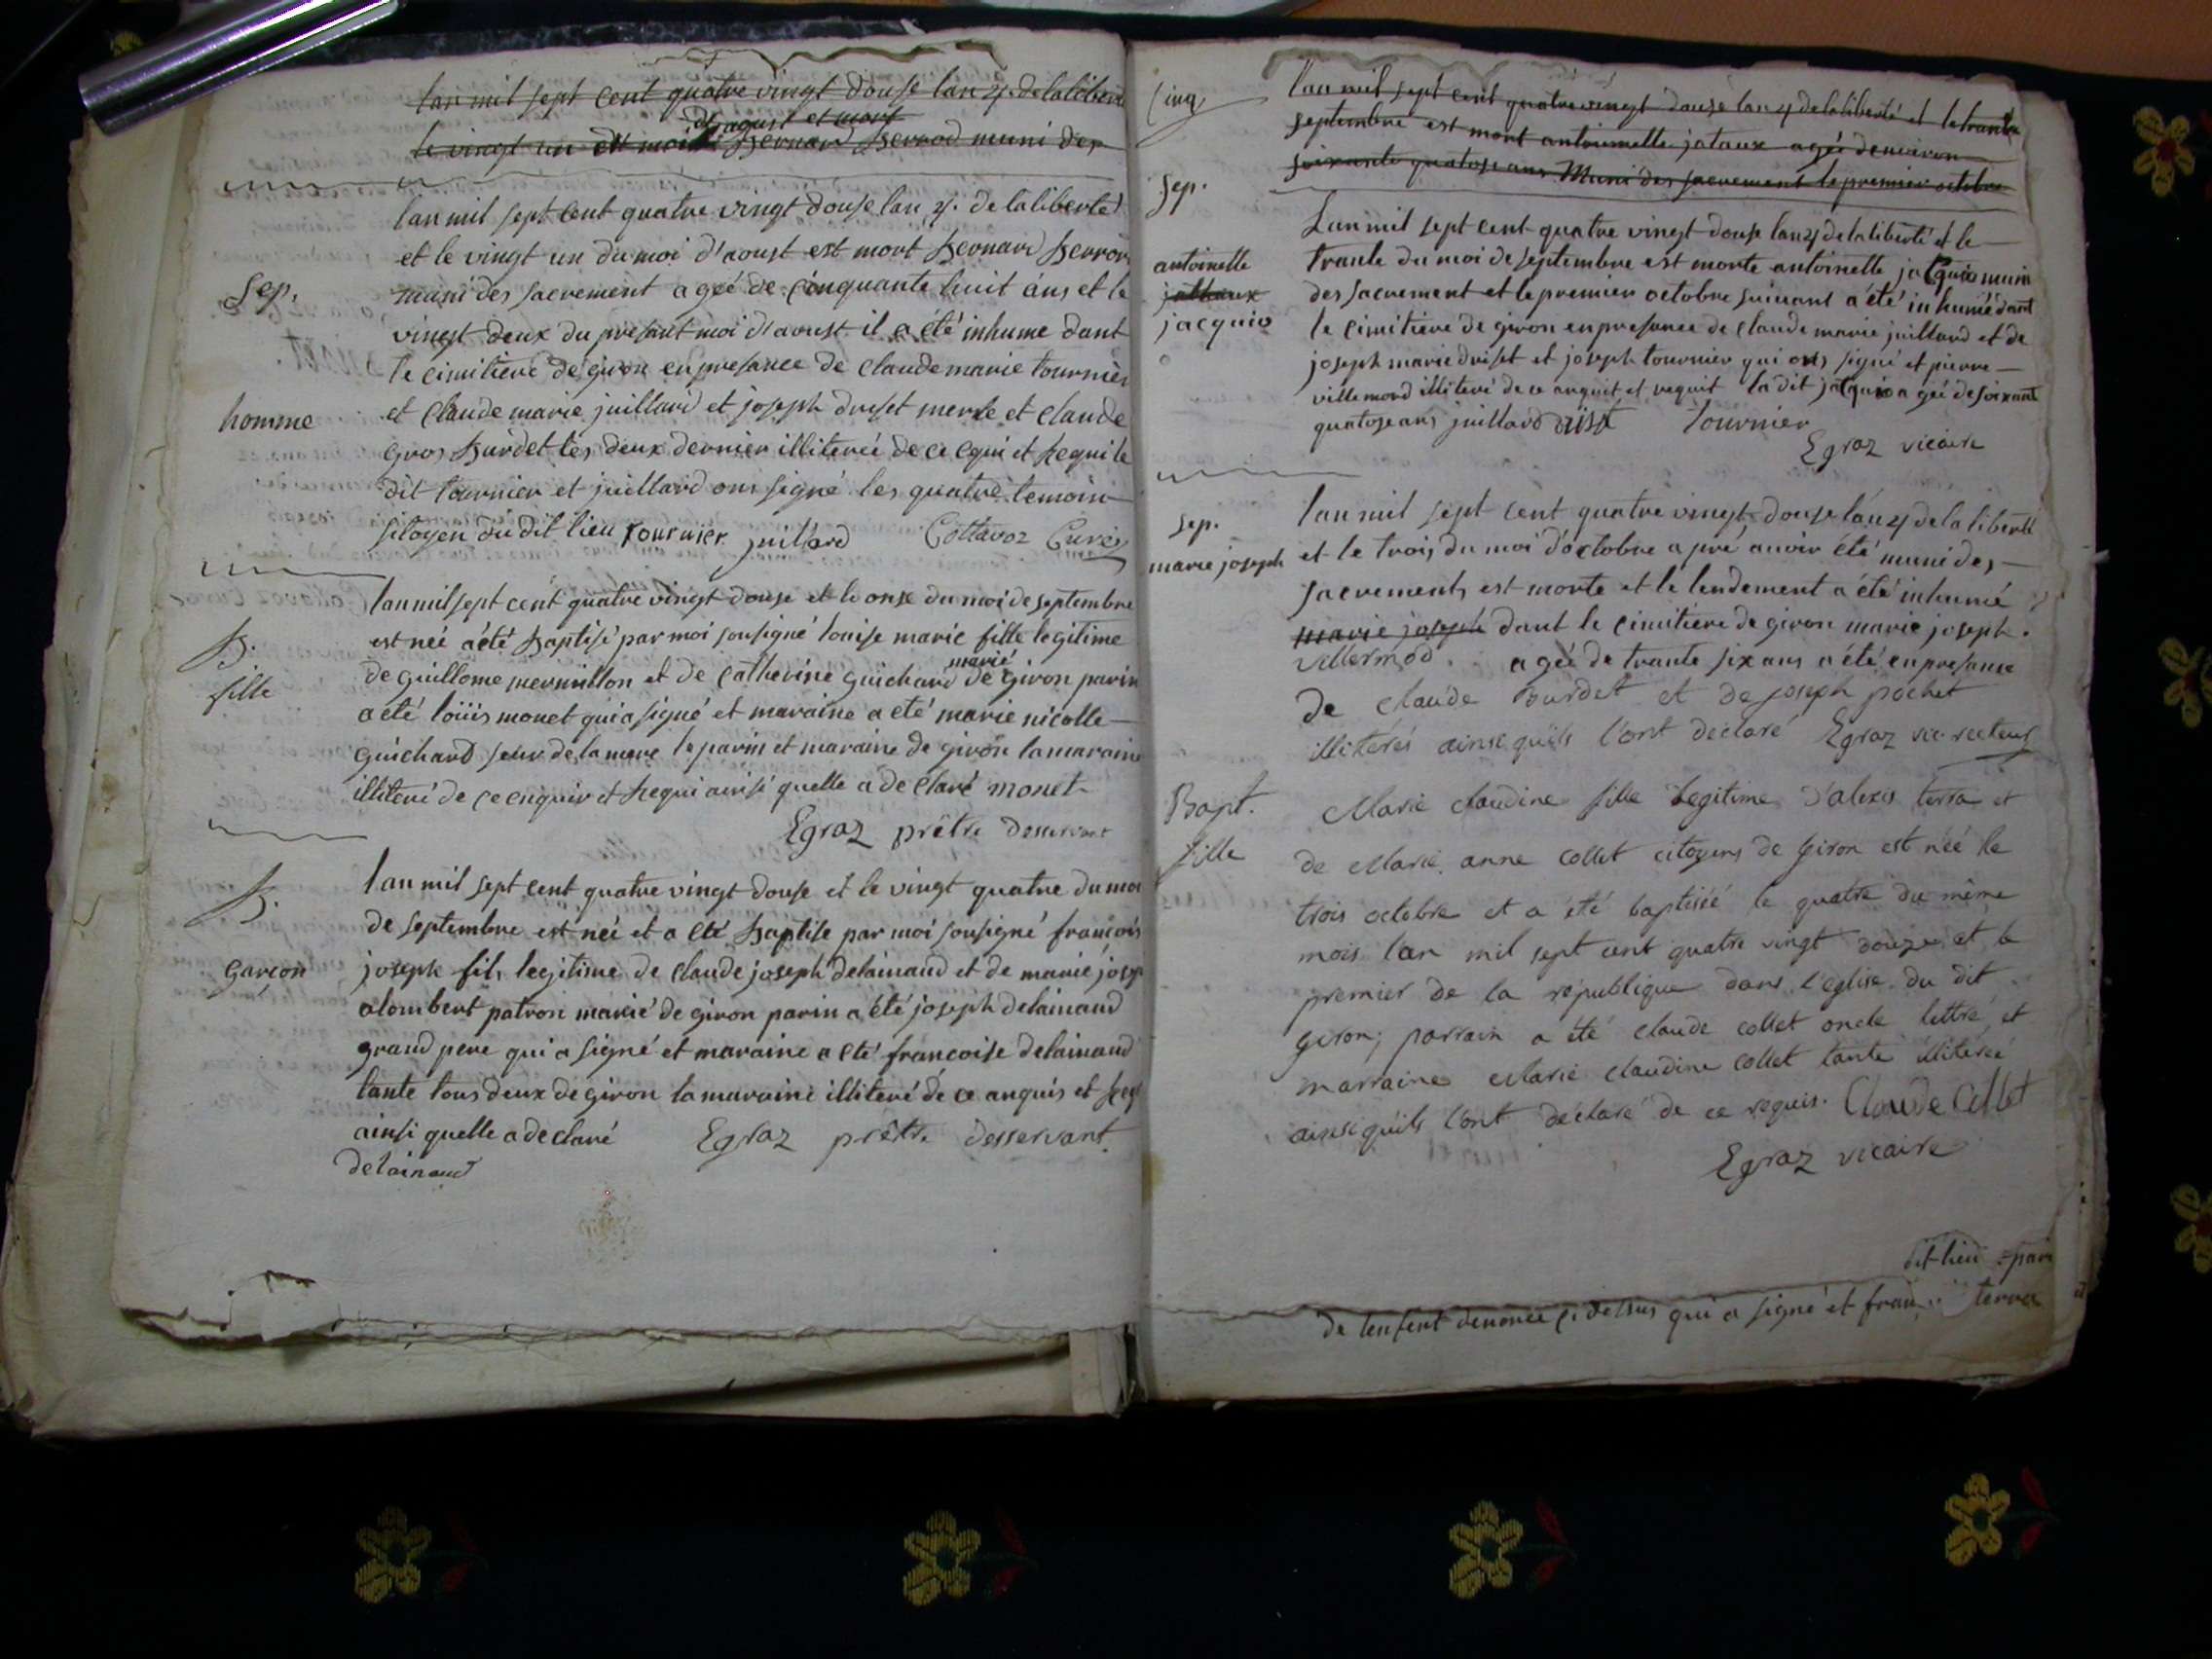 lan mil sept cent quatre vingt douse lan 4. de la liberté
d'agust et mort
le vingt un Bernard Berrod muni des
lan mil sept cent quatre vingt douse lan 4. de la liberté
et le vingt un du moi d'aoust est mort Bernard Berrod
Sep.
muni des sacrement a geé de cinquante huit ans et le
vingt deux du presant moi d'aoust il a été inhume dant
le cimitiere de giron en presance de claude marie tournier
homme
et Claude marie juillard et joseph druset merle et claude
gros Burdet les deux dernier illiterée de ce equi et requi le
dit tournier et juillard ons signé les quatre temoin
sitoyen du dit lieu tournier juillard Cottavoz Curé
lan mil sept cent quatre vingt douse et le onse du moi de septembre
B.
fille
est neé a été Baptisé par moi sousigné louise marie fille legitime
marié
de guillome mermillon et de catherine guichard de giron parin
a eté loüis monet qui a signé et maraine a eté marie nicolle
guichard seur de la mere le parin et maraine de giron la maraine
illiteré de ce enquir et requi ainsi quelle a de claré monet
Egraz prêtre desservant
B.
lan mil sept cent quatre vingt douse et le vingt quatre du moi
de septembre est neé et a eté Baptise par moi sousigné francois
garçon
joseph fils legitime de claude joseph delainaud et de marie josep
alombert patron marié de giron parin a été joseph delainaud
grand pere qui a signé et maraine a eté francoise delainaud
tante tous deux de giron la maraine illiteré de ce anquis et
ainsi quelle a de claré Egraz prêtre desservant
delainaud
Cinq
lan mil sept cent quatre vingt douse lan 4 de la liberté et le trante
septembre est mort antoinette jataux agée denviron
soixante quatose ans Muni des sacrement le premier octobre
Sep.
antoinette
jattaux
jacquio
Lan mil sept cent quatre vingt douse lan 4 de la liberté et le
trante du moi de septembre est morte antoinette jacquio muni
des sacrement et le premier octobre suivant a été in humé dant
le cimitiere de giron en presance de claude marie juillard et de
joseph marie druset et joseph tournier qui ons signé et pierre
villemond illiteré de ce anquit et requit la dit jacquio a geé de soixante
quatose ans juillard tournier
Egraz vicaire
Sep.
marie joseph
lan mil sept cent quatre vingt douse lan 4 de la liberté
et le trois du moi d'octobre a pré avoir été muni des
sacrements est morte et le lendement a été inhumé
marie joseph dant le cimitiere de giron marie joseph
villermod. a geé de trante six ans a été en presance
de claude Burdet et de joseph pochet
illiterés ainsi qu'ils l'ont declaré Egraz vic. recteur
Bapt.
fille
Marie claudine fille legitime d'alexis terra et
de Marie anne collet citoyens de giron est née le
trois octobre et a été baptisée le quatre du même
mois l'an mil sept cent quatre vingt douze et le
premier de la république dans l'eglise du dit
giron; parrain a été claude collet oncle lettré et
marraine Marie claudine collet tante illiterée
ainsi qu'ils l'ont déclaré de ce requis. Claude Collet
Egraz vicaire
dit lieu =pari
de lenfent denoncé ci dessus qui a signé et terra